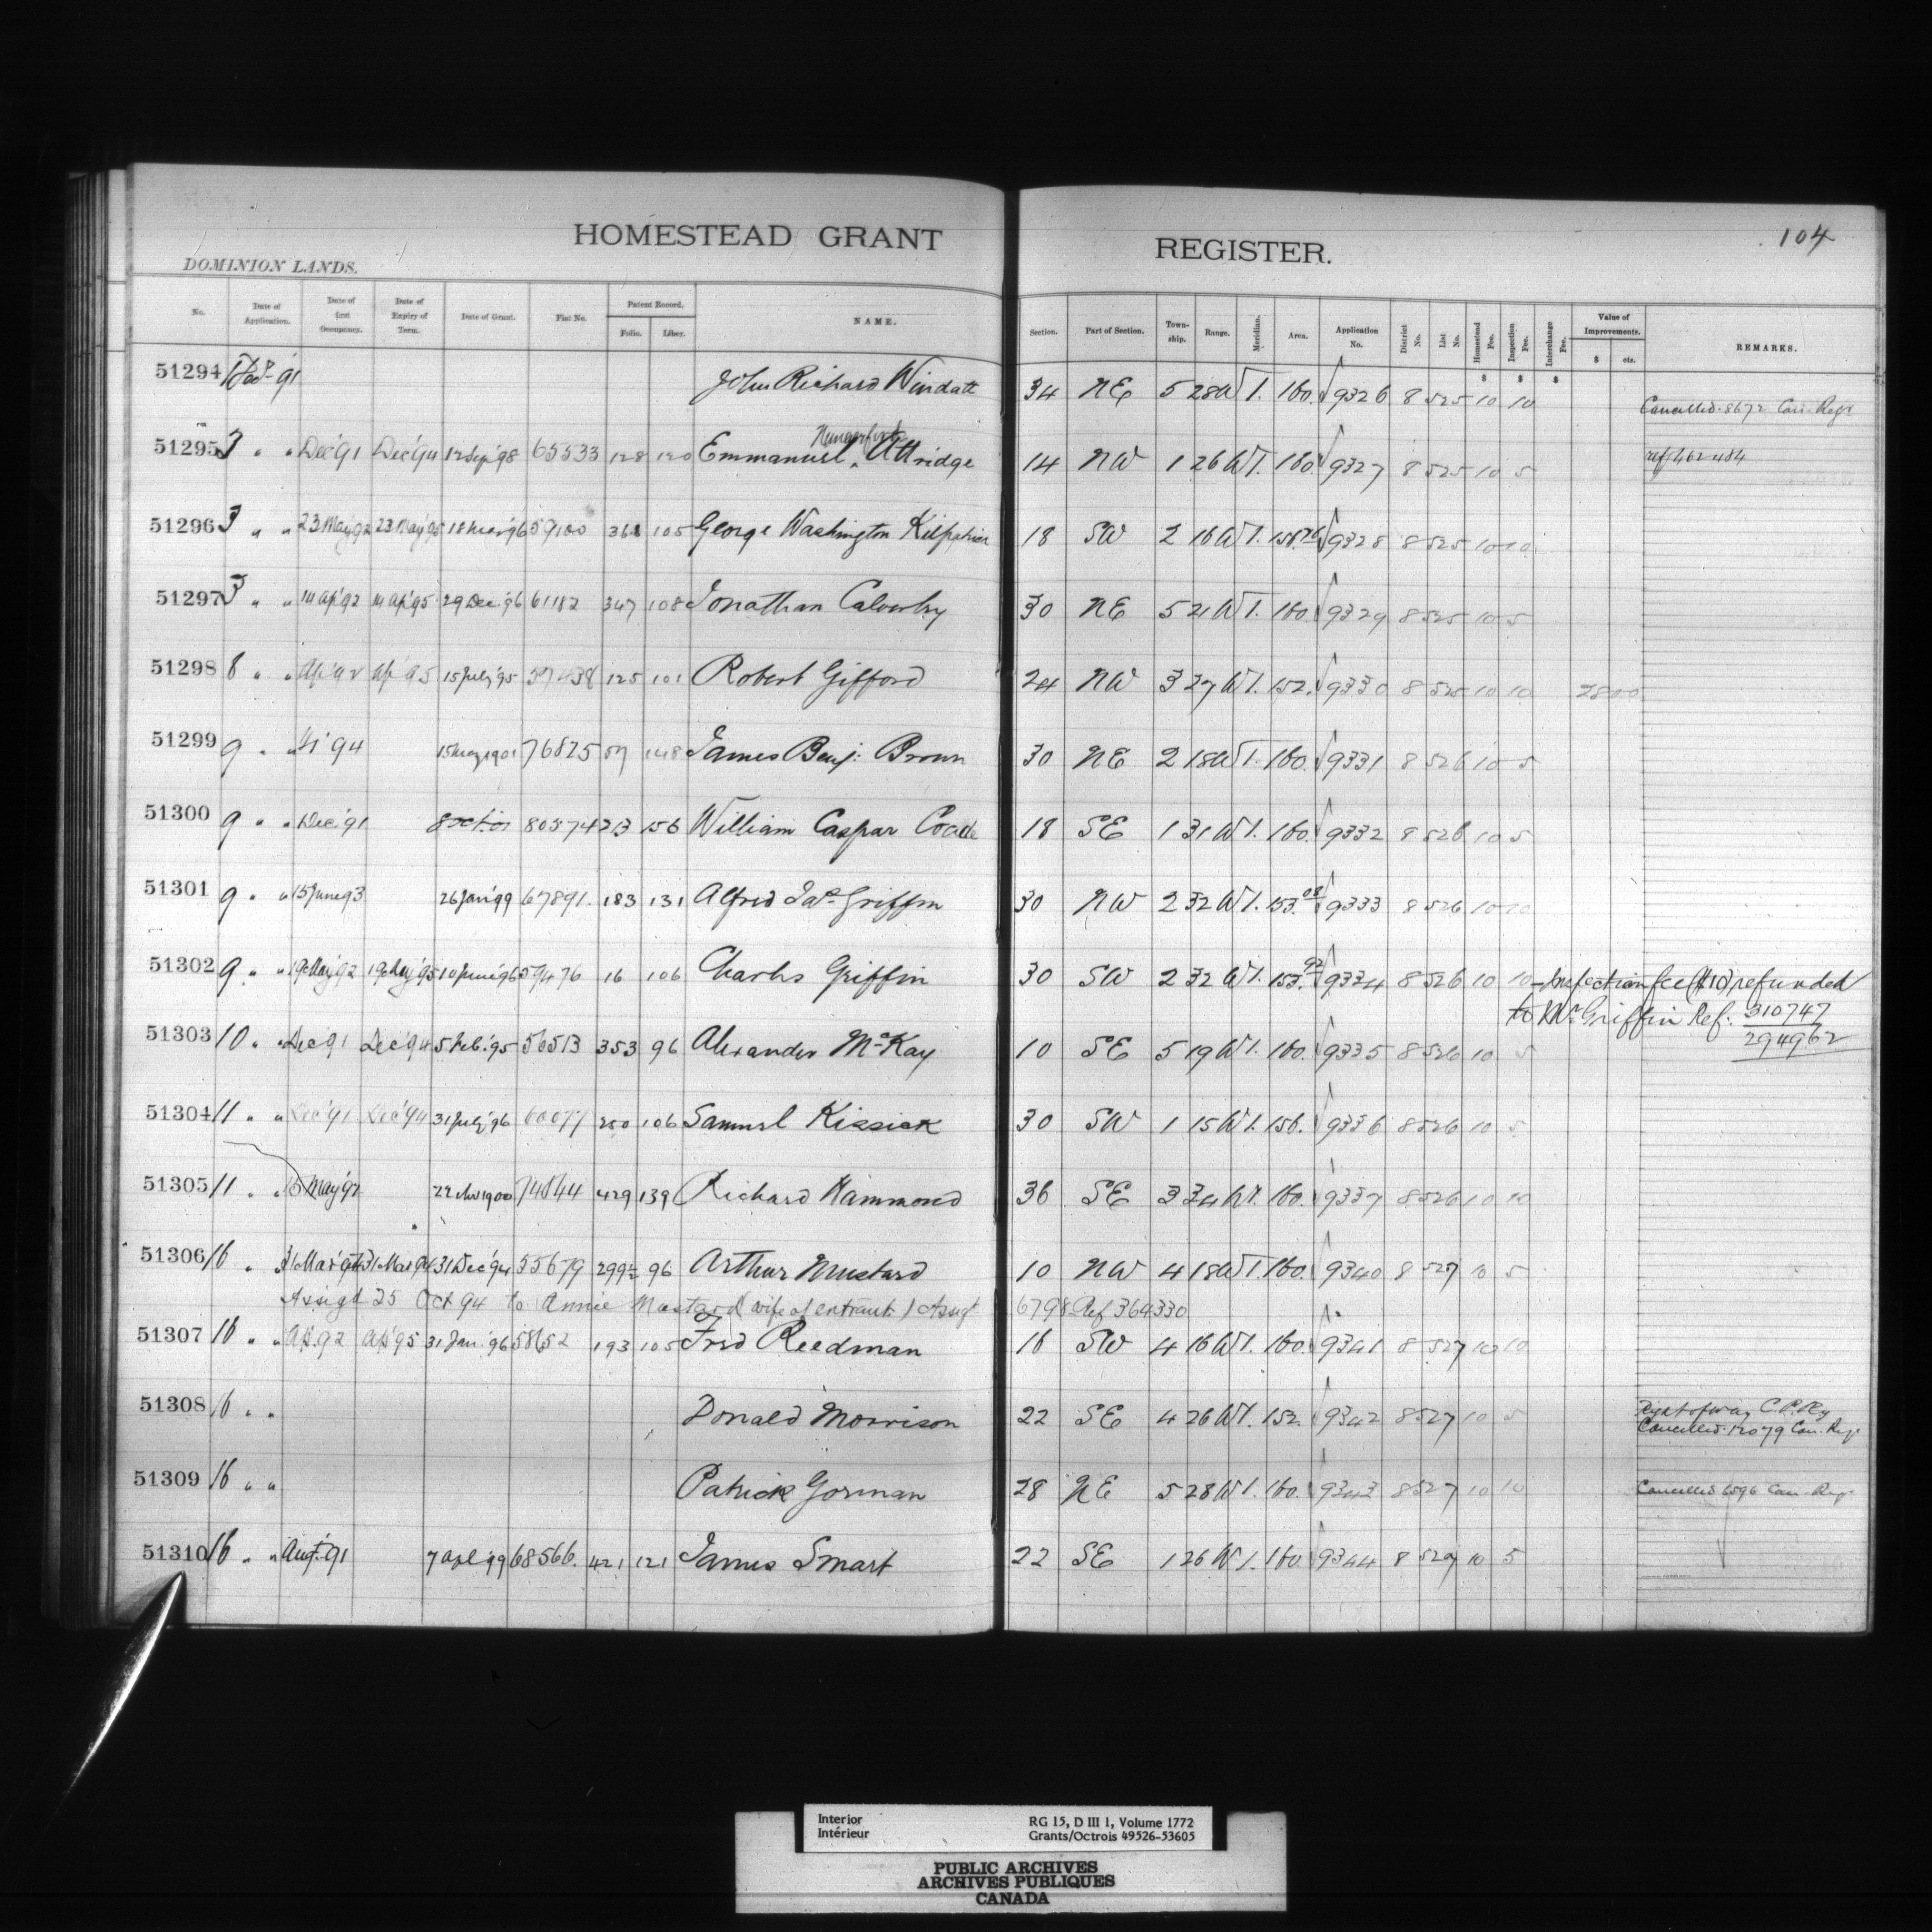 HOMESTEAD GRANT REGISTER. 104
DOMINION LANDS.
No. Date of Application. Date of first Occupancy. Date of Expiry of Term. Date of Grant. Fiat No. Patent Record. Folio. Liber. NAME. Section. Part of Section. Town-ship. Range. Meridian. Area. Application No. District No. List No. Homestead Fee. Inspection Fee. Interchange Fee. Value of Improvements. $ cts. REMARKS.
$ $ $
51294 '91 John Richard Windatt 34 NE 5 28 W 1. 160. 9326 8 525 10 10 Cancelled 8672 Can. Regr
Hungerford
51295 3 " " Dec '91 Dec '94 12 Sep '98 65533 128 120 Emmanuel Attridge 14 NW 1 26 W 1. 160. 9327 8 525 10 5 ref 462484
51296 3 " " 23 May '92 23 May '95 18 Mar '96 59100 368 105 George Washington Kilpatrick 18 SW 2 16 W 1. 9328 8 525 10 10
51297 3 " " 14 Ap '92 14 Ap '95 29 Dec. '96 61182 347 108 Jonathan Calverley 30 NE 5 21 W 1. 160. 9329 8 525 10 5
51298 8 " " Ap '92 Ap '95 15 July '95 57438 125 101 Robert Gifford 24 NW 3 27 W 1. 152. 9330 8 525 10 10
51299 9 " " '94 15 May 1901 76825 57 148 James Benj. Brown 30 NE 2 18 W 1. 160. 9331 8 526 10 5
51300 9 " " Dec. '91 8 Oct. '01 80574 213 156 William Caspar Coade 18 SE 1 31 W 1. 160. 9332 8 526 10 5
51301 9 " " 15 June 93 26 Jan '99 67891. 183 131 Alfred Jas. Griffin 30 NW 2 32 W 1. 153.08 9333 8 526 10 10
51302 9 " " 19 May '92 19 May '95 10 June '96 59476 16 106 Charles Griffin 30 SW 2 32 W 1. 153.92 9334 8 526 10 10 — Inspection fee ($10) refunded
to Mr Griffin Ref: 310747
51303 10 " Dec '91 Dec '94 5 Feb. '95 56513 353 96 Alexander McKay 10 SE 5 19 W 1. 160. 9335 8 526 10 5 294962
51304 11 " " Dec '91 Dec '94 31 July '96 60077 250 106 Samuel Kissick 30 SW 1 15 W 1. 156. 9336 8 526 10 5
51305 11 " " May '92 1900 74844 429 139 Richard Hammond 36 SE 3 34 W 1. 160. 9337 8 526 10 10
51306 16 " 31 Mar '94 31 Dec '94 55679 299½ 96 Arthur Mustard 10 NW 4 18 W 1. 160. 9340 8 527 10 5
Assigt 25 Oct 94 to Annie Mustard (wife of entrant) Assigt 6798 Ref 364330
51307 16 " " Ap. 92 Ap '95 31 Jan. '96 58652 193 105 Fred Reedman 16 SW 4 16 W 1. 160. 9341 8 527 10 10
51308 16 " " Donald Morrison 22 SE 4 26 W 1. 152. 9342 8 527 10 5 Right of way C.P.Ry
Cancelled 12079 Can. Reg.
51309 16 " " Patrick Gorman 28 NE 5 28 W 1. 160. 9343 8 527 10 10 Cancelled 6596 Can. Reg.
51310 16 " " Aug. '91 7 Apl '99 68566. 421 121 James Smart 22 SE 1 26 W 1. 160. 9344 8 527 10 5
Interior RG 15, D III 1, Volume 1772
Intérieur Grants/Octrois 49526-53605
PUBLIC ARCHIVES
ARCHIVES PUBLIQUES
CANADA